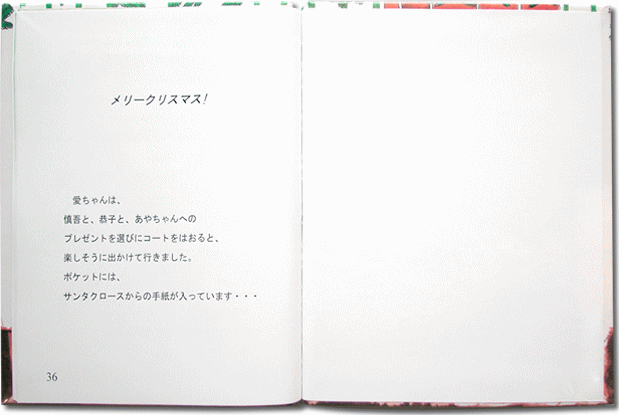 メリークリスマス!
愛ちゃんは、
慎吾と、恭子と、あやちゃんへの
プレゼントを選びにコートをはおると、
楽しそうに出かけて行きました。
ポケットには、
サンタクロースからの手紙が入っています・・・
36